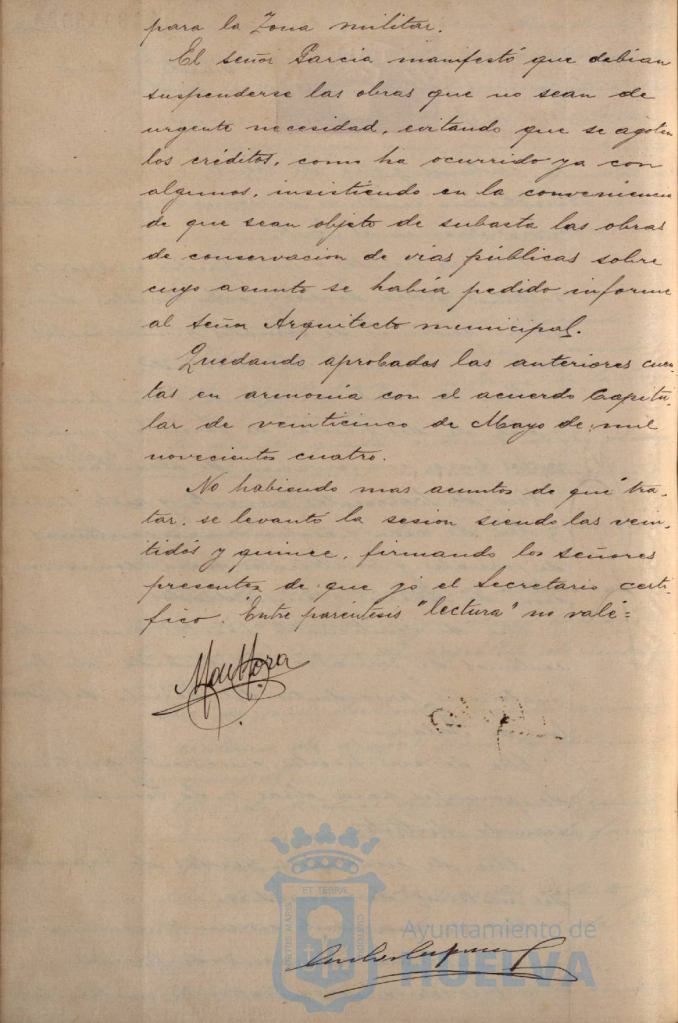 para la Zona militar.
El señor Garcia manifestó que debian
suspenderse las obras que no sean de
urgente necesidad, evitando que se agoten
los créditos, como ha ocurrido ya con
algunos, insistiendo en la conveniencia
de que sean objeto de subasta las obras
de conservacion de vias públicas sobre
cuyo asunto se había pedido informe
al señor Arquitecto municipal.
Quedando aprobadas las anteriores cuen-
tas en armonía con el acuerdo Capitu-
lar de veinticinco de Mayo de mil
novecientos cuatro.
No habiendo mas asuntos de que tra-
tar, se levantó la sesion siendo las vein-
tidós y quince, firmando los señores
presentes de que yó el Secretario certi-
fico. Entre paréntesis "lectura" no vale=
Ayuntamiento de
HUELVA